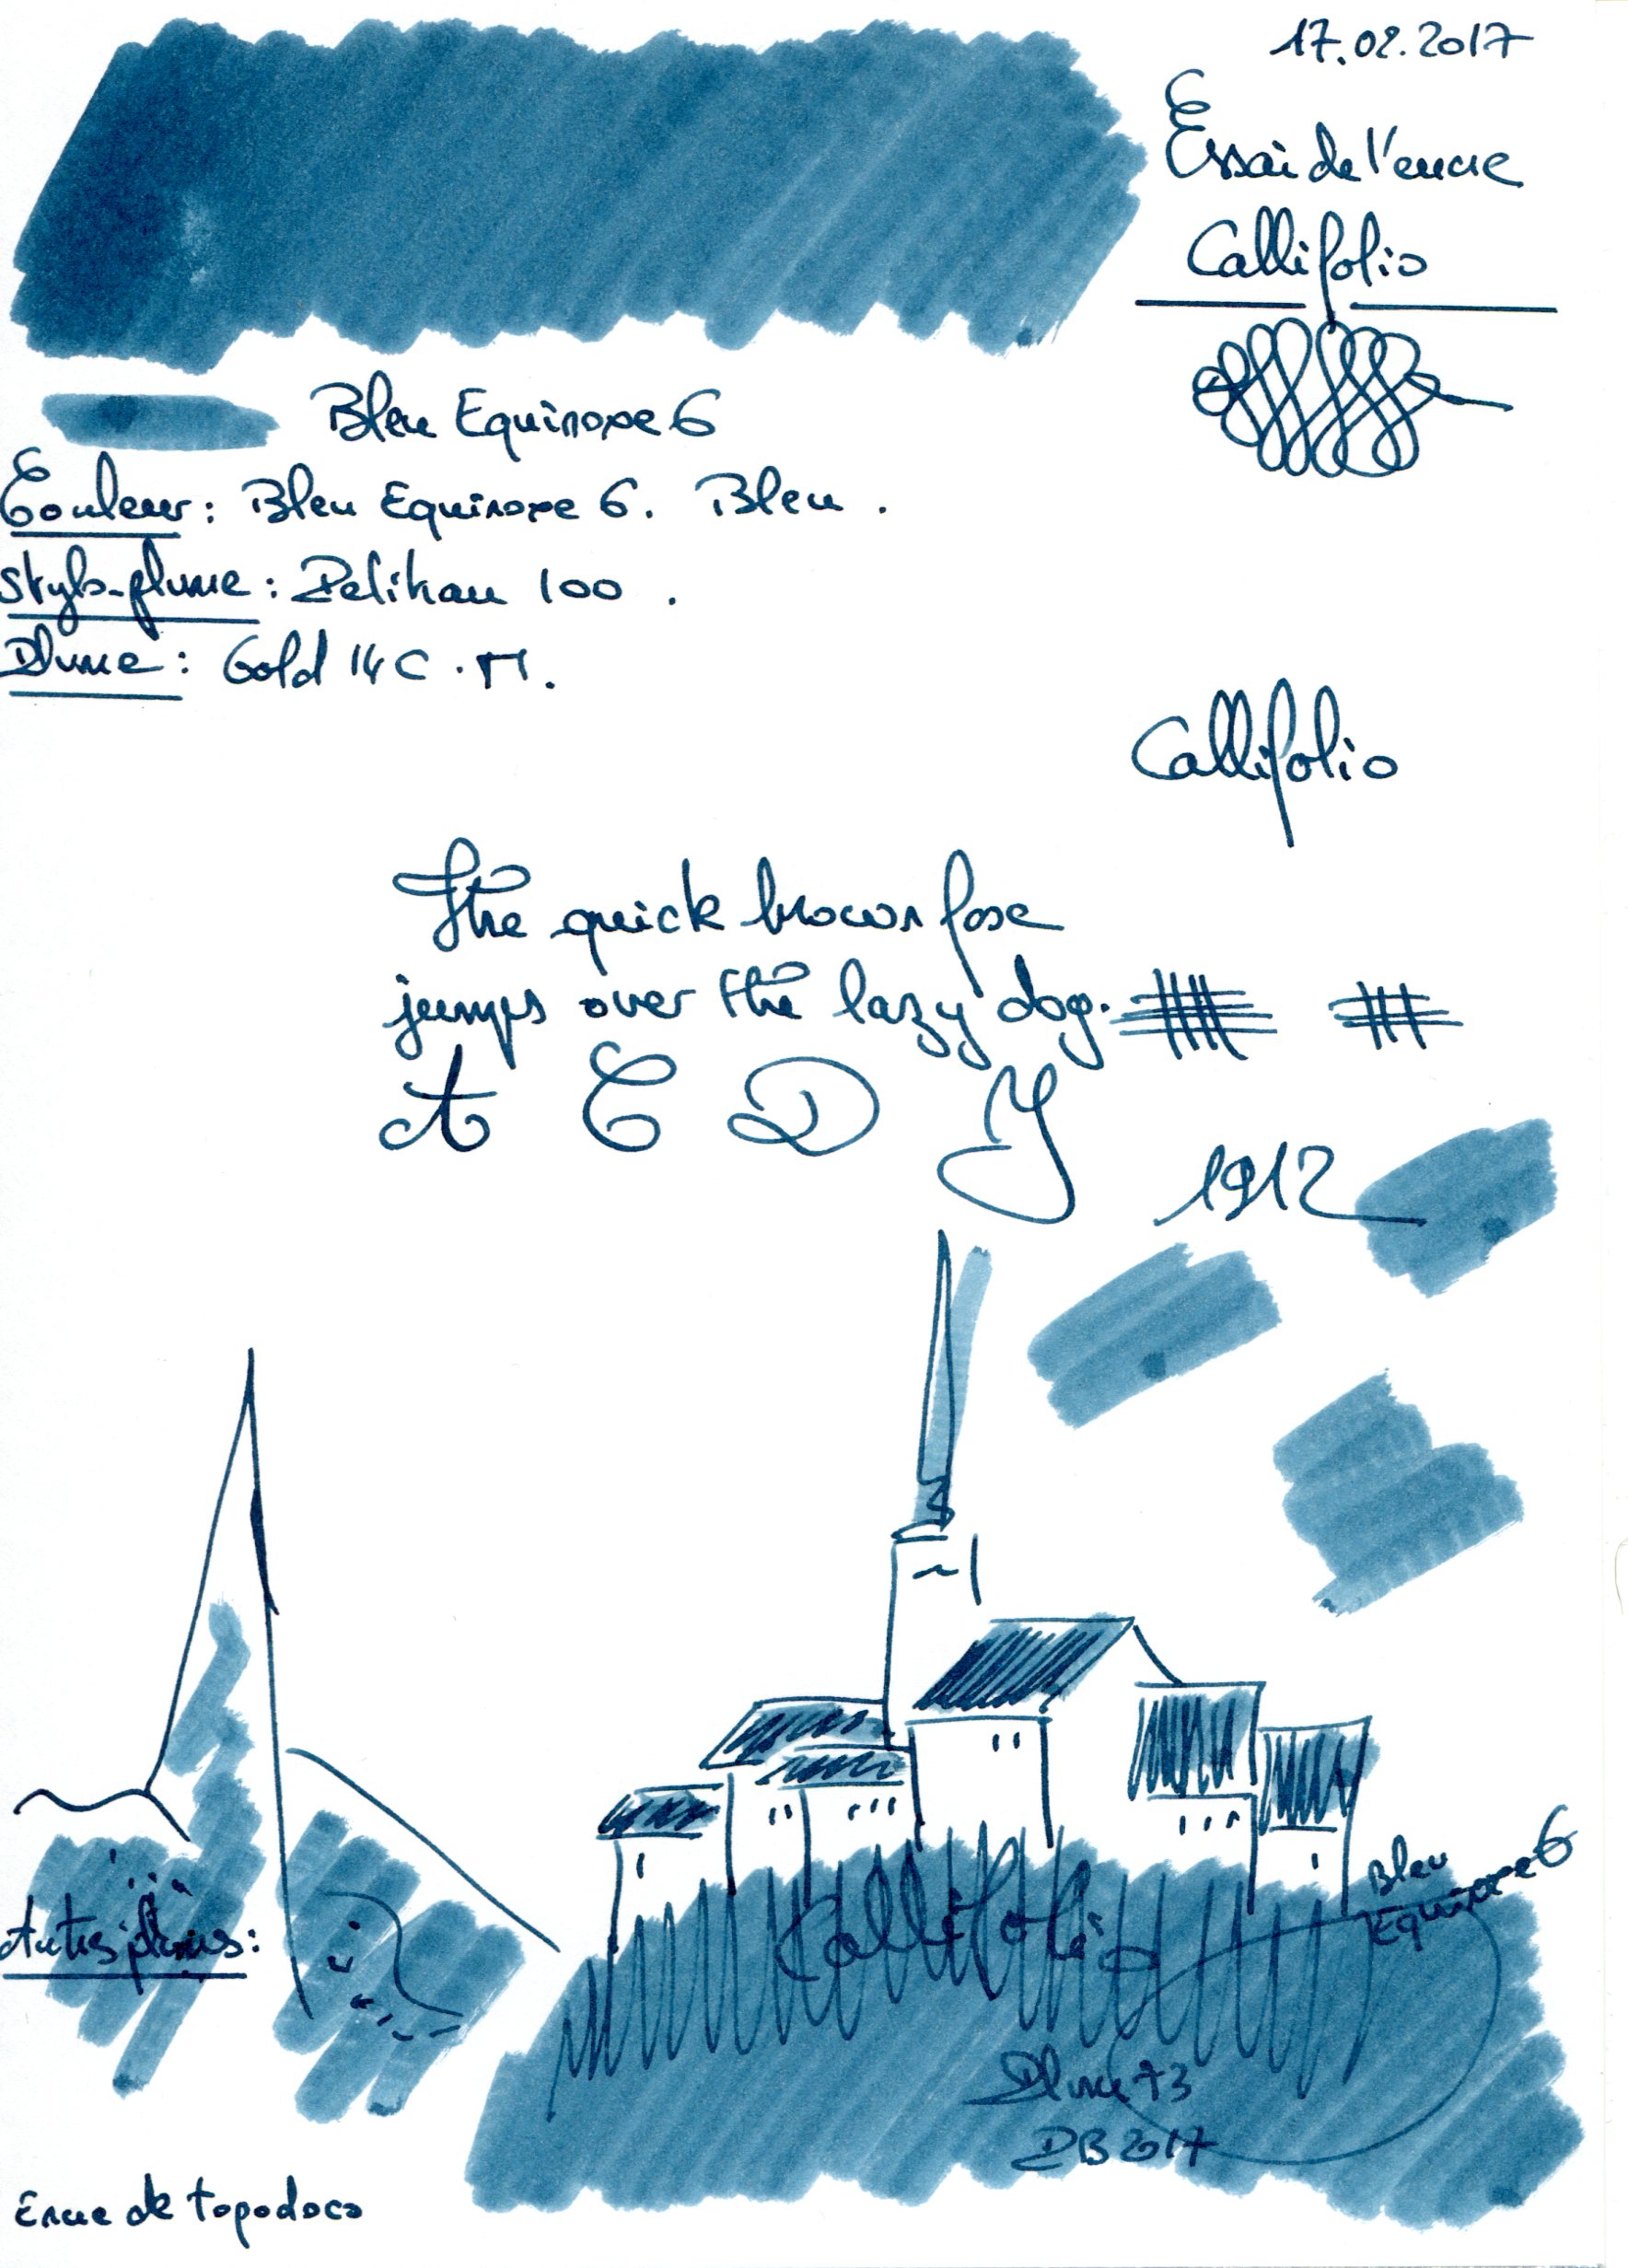 17.02.2017
Essai de l'encre
Callifolio
Bleu Equinoxe 6
Couleur : Bleu Equinoxe 6. Bleu .
Stylo-plume : Pelikan 100 .
Plume : Gold 14 C . M.
Callifolio
The quick brown fox
jumps over the lazy dog.
A C D Y
1912
Bleu
Equinoxe 6
Autres plumes :
Callifolio
Plume 73
PB 2017
Encre de topodoco